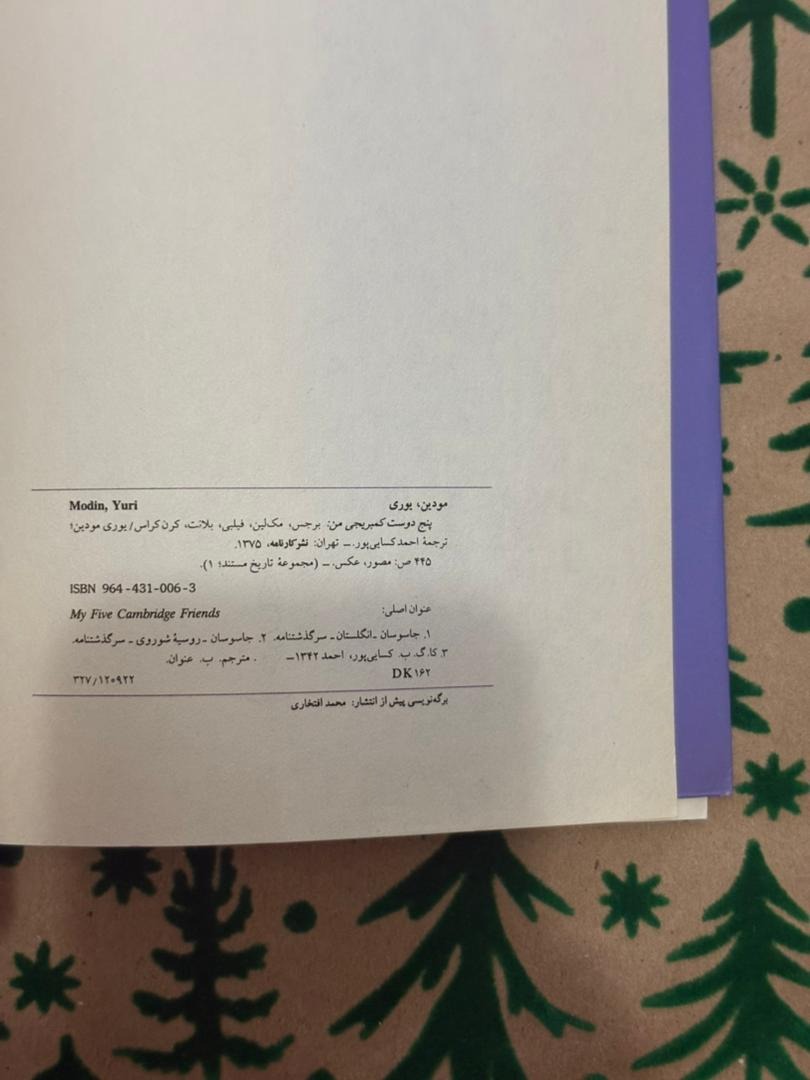 مودین، یوری Modin, Yuri
پنج دوست کمبریجی من: برجس، مک‌لین، فیلبی، بلانت، کرن کراس/ یوری مودین؛
ترجمهٔ احمد کسایی‌پور. ـ تهران: نشر کارنامه، ۱۳۷۵.
۴۴۵ ص: مصور، عکس. ـ (مجموعهٔ تاریخ مستند؛ ۱).
ISBN 964-431-006-3
عنوان اصلی: My Five Cambridge Friends
۱. جاسوسان ـ انگلستان ـ سرگذشتنامه. ۲. جاسوسان ـ روسیهٔ شوروی ـ سرگذشتنامه.
۳. کا.گ.ب. کسایی‌پور، احمد ۱۳۴۲ـ . مترجم. ب. عنوان.
DK۱۶۲ ۳۲۷/۱۲۰۹۲۲
برگه‌نویسی پیش از انتشار: محمد افتخاری